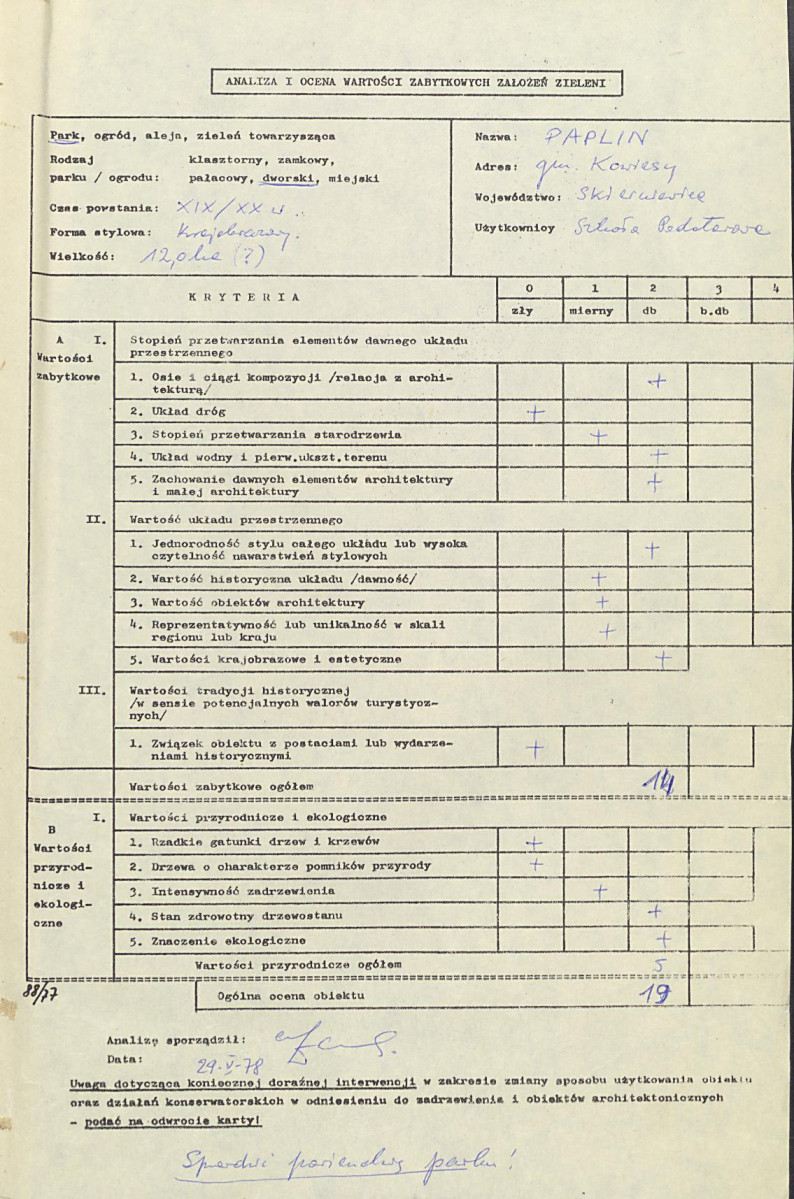 ANALIZA I OCENA WARTOŚCI ZABYTKOWYCH ZAŁOŻEŃ ZIELENI
Park, ogród, aleja, zieleń towarzysząca
Rodzaj klasztorny, zamkowy,
parku / ogrodu: pałacowy, dworski, miejski
Czas powstania: XIX/XX w.
Forma stylowa: Krajobrazowy.
Wielkość: 12,0 ha (?)
Nazwa: PAPLIN
Adres: gm. Kowiesy
Województwo: Skierniewice
Użytkownicy Szkoła Podstawowa
KRYTERIA
0 1 2 3 4
zły mierny db b.db
A I. Stopień przetwarzania elementów dawnego układu
Wartości przestrzennego
zabytkowe 1. Osie i ciągi kompozycji /relacja z archi-
tekturą/ +
2. Układ dróg +
3. Stopień przetwarzania starodrzewia +
4. Układ wodny i pierw.ukszt.terenu +
5. Zachowanie dawnych elementów architektury
i małej architektury +
II. Wartość układu przestrzennego
1. Jednorodność stylu całego układu lub wysoka
czytelność nawarstwień stylowych +
2. Wartość historyczna układu /dawność/ +
3. Wartość obiektów architektury +
4. Reprezentatywność lub unikalność w skali
regionu lub kraju +
5. Wartości krajobrazowe i estetyczne +
III. Wartości tradycji historycznej
/w sensie potencjalnych walorów turystycz-
nych/
1. Związek obiektu z postaciami lub wydarze-
niami historycznymi +
Wartości zabytkowe ogółem 14
I. Wartości przyrodnicze i ekologiczne
B
Wartości 1. Rzadkie gatunki drzew i krzewów +
przyrod- 2. Drzewa o charakterze pomników przyrody +
nicze i 3. Intensywność zadrzewienia +
ekologi- 4. Stan zdrowotny drzewostanu +
czne 5. Znaczenie ekologiczne +
Wartości przyrodnicze ogółem 5
88/77
Ogólna ocena obiektu 19
Analizę sporządził:
Data: 29.V-78
Uwaga dotycząca koniecznej doraźnej interwencji w zakresie zmiany sposobu użytkowania obiektu
oraz działań konserwatorskich w odniesieniu do zadrzewienia i obiektów architektonicznych
- podać na odwrocie karty!
parku!